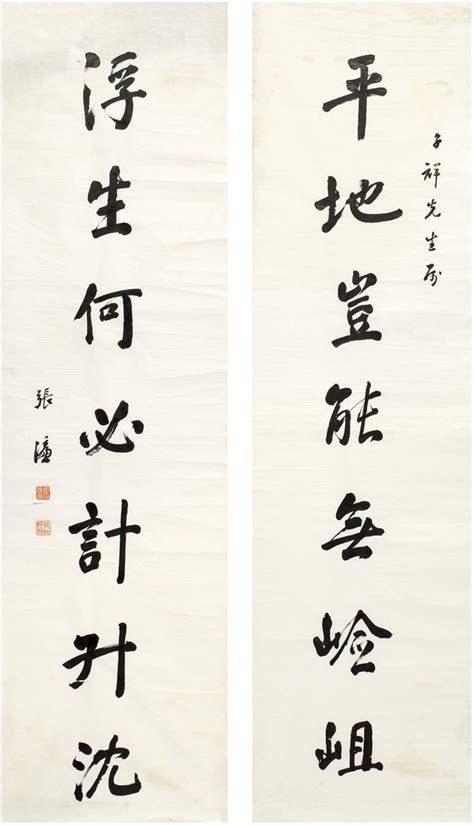 子祥先生属
平地豈能無嶮岨
浮生何必計升沈
張